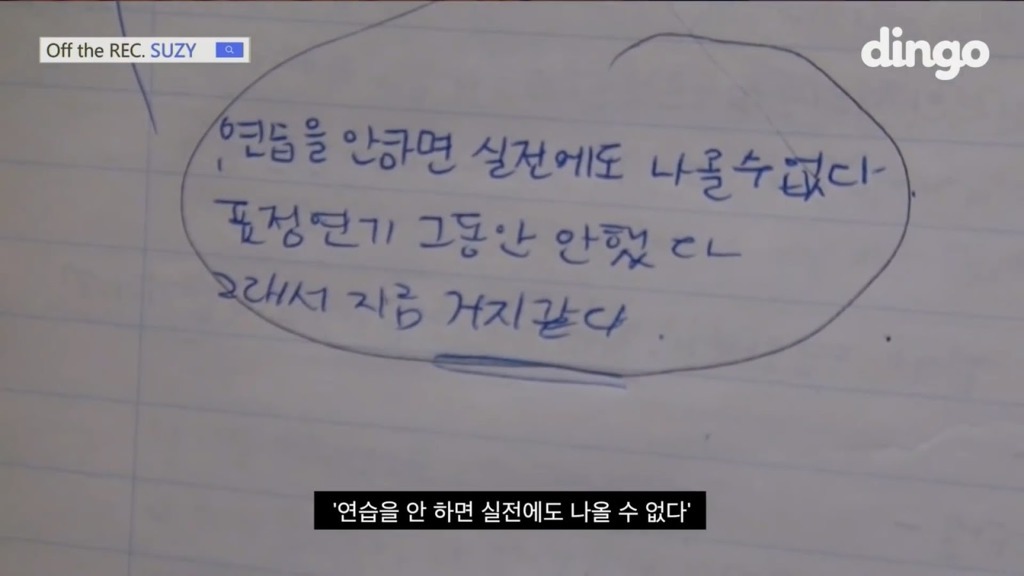 Off the REC. SUZY
dingo
연습을 안하면 실전에도 나올수 없다.
표정연기 그동안 안했다
그래서 지금 거지같다.
'연습을 안 하면 실전에도 나올 수 없다'